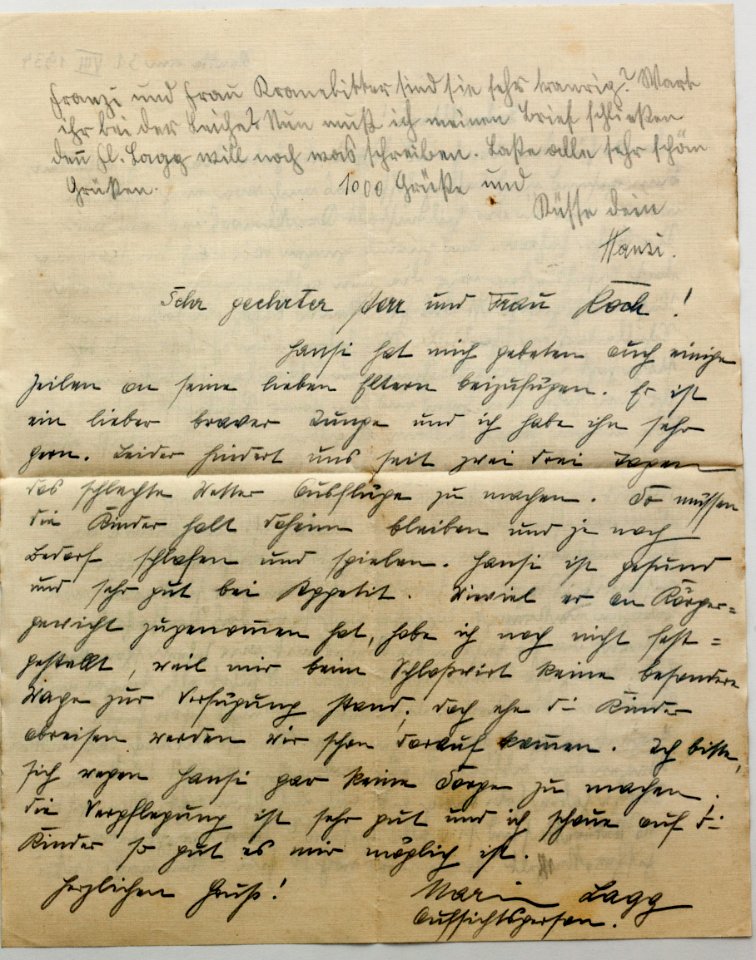 Franzi und Frau Kranebitter sind sie sehr traurig? Wart
ihr bei der Leiche? Nun muß ich meinen Brief schließen
den Fl. Lagg will noch was schreiben. Laße alle sehr schön
Grüßen. 1000 Grüße und
Küsse dein
Hansi.
Sehr geehrter Herr und Frau Koch!
Hansi hat mich gebeten auch einige
Zeilen an seine lieben Eltern beizufügen. Er ist
ein lieber braver Junge und ich habe ihn sehr
gern. Leider hindert uns seit zwei drei Tagen
das schlechte Wetter Ausflüge zu machen. So müssen
die Kinder halt daheim bleiben und je nach
Bedarf schlafen und spielen. Hansi ist gesund
und sehr gut bei Appetit. Wieviel er an Körper=
gewicht zugenommen hat, habe ich noch nicht fest=
gestellt, weil mir beim Schloßwirt keine besondere
Wage zur Verfügung stand; doch ehe di Kinder
abreisen werden wir schon darauf kommen. Ich bitte,
sich wegen Hansi gar keine Sorge zu machen.
die Verpflegung ist sehr gut und ich schaue auf di
Kinder so gut es mir möglich ist.
Herzlichen Gruß! Maria Lagg
Aufsichtsperson.